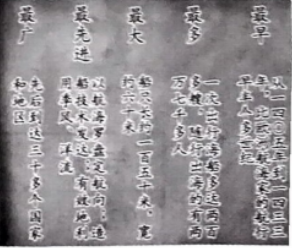 最早
从一四〇五年到一四三三
年，比欧洲航海家的航行
早半个多世纪
最多
一次出行海船多达两百
多艘，随行出海的有两
万七千多人
最大
船长约一百五十米，宽
约六十米
最先进
以航海罗盘定航向；造
船技术发达，有效地利
用季风、洋流
最广
先后到达三十多个国家
和地区